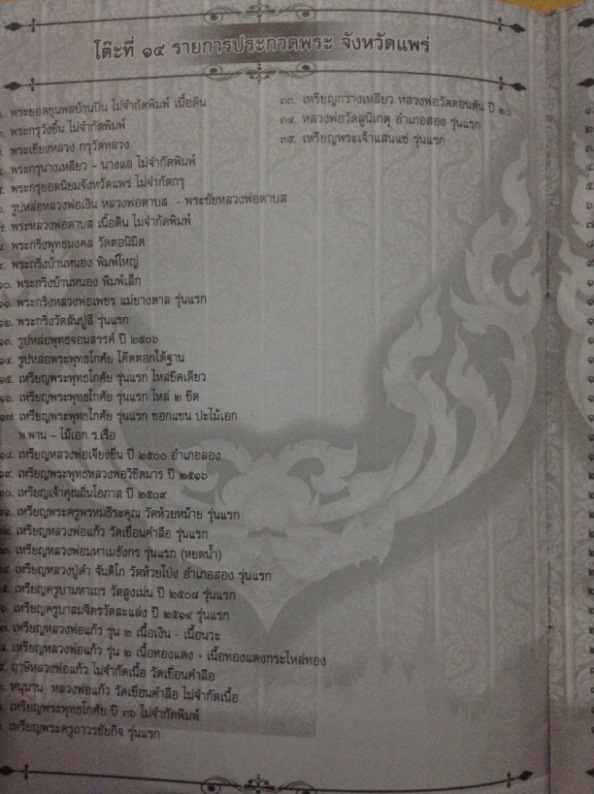 โต๊ะที่ ๑๔ รายการประกวดพระ จังหวัดแพร่
พระยอดขุนพลบ้านปิน ไม่จำกัดพิมพ์ เนื้อดิน
พระกรุวังชิ้น ไม่จำกัดพิมพ์
พระเชียงหลวง กรุวัดหลวง
พระกรุนางเหลียว - นางแล ไม่จำกัดพิมพ์
พระกรุยอดนิยมจังหวัดแพร่ ไม่จำกัดกรุ
รูปหล่อหลวงพ่อเงิน หลวงพ่อดาบส - พระชัยหลวงพ่อดาบส
พระหลวงพ่อดาบส เนื้อดิน ไม่จำกัดพิมพ์
พระกริ่งพุทธมงคล วัดตอนิมิต
๙. พระกริ่งบ้านหนอง พิมพ์ใหญ่
๑๐. พระกริ่งบ้านหนอง พิมพ์เล็ก
๑๑. พระกริ่งหลวงพ่อเพชร แม่ยางตาล รุ่นแรก
๑๒. พระกริ่งวัดสันปูลี รุ่นแรก
๑๓. รูปหล่อพุทธจอมสวรรค์ ปี ๒๕๐๖
๑๔. รูปหล่อพระพุทธโกศัย โค๊ตตอกใต้ฐาน
๑๕. เหรียญพระพุทธโกศัย รุ่นแรก ไหล่ขีดเดียว
๑๖. เหรียญพระพุทธโกศัย รุ่นแรก ไหล่ ๒ ขีด
๑๗. เหรียญพระพุทธโกศัย รุ่นแรก ซอกแขน ปะไม้เอก
พ.พาน - ไม้เอก ร.เรือ
๑๘. เหรียญหลวงพ่อเจียงขึ้น ปี ๒๕๐๐ อำเภอลอง
๑๙. เหรียญพระพุทธหลวงพ่อวิชิตมาร ปี ๒๕๑๖
๒๐. เหรียญเจ้าคุณถิ่นโอภาส ปี ๒๕๐๙
๒๑. เหรียญพระครูพรหมธีระคุณ วัดห้วยหม้าย รุ่นแรก
๒๒. เหรียญหลวงพ่อแก้ว วัดเขื่อนคำลือ รุ่นแรก
๒๓. เหรียญหลวงพ่อมหาเมธังกร รุ่นแรก (หยดน้ำ)
๒๔. เหรียญหลวงปู่ดำ จันติโก วัดห้วยโป่ง อำเภอสอง รุ่นแรก
๒๕. เหรียญครูบามหาเถร วัดสูงเม่น ปี ๒๕๐๘ รุ่นแรก
เหรียญครูบาสมจิตรวัดสะแล่ง ปี ๒๕๑๔ รุ่นแรก
เหรียญหลวงพ่อแก้ว รุ่น ๒ เนื้อเงิน - เนื้อนวะ
เหรียญหลวงพ่อแก้ว รุ่น ๒ เนื้อทองแดง - เนื้อทองแดงกระไหล่ทอง
ฤๅษีหลวงพ่อแก้ว ไม่จำกัดเนื้อ วัดเขื่อนคำลือ
หนุมาน หลวงพ่อแก้ว วัดเขื่อนคำลือ ไม่จำกัดเนื้อ
เหรียญพระพุทธโกศัย ปี ๓๖ ไม่จำกัดพิมพ์
เหรียญพระครูถาวรชัยกิจ รุ่นแรก
๓๓. เหรียญกวางเหลียว หลวงพ่อวัดดอนตัน ปี ๒๐
๓๔. หลวงพ่อวัดลูนิเกตุ อำเภอสอง รุ่นแรก
๓๕. เหรียญพระเจ้าแสนแซ่ รุ่นแรก